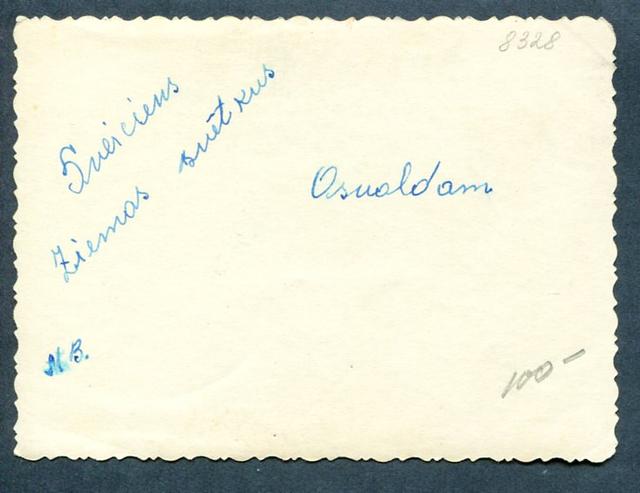 8328
Sveiciens
Ziemas svētkus
Osvaldam
M B.
100-